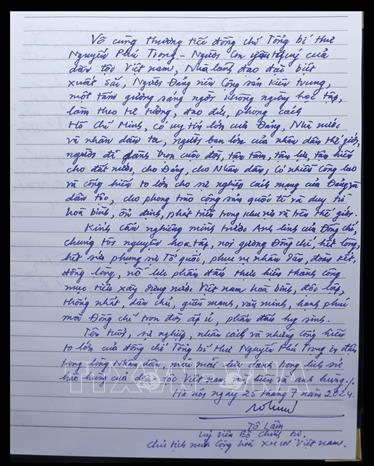 Vô cùng thương tiếc đồng chí Tổng bí thư
Nguyễn Phú Trọng - Người con yêu quý của
dân tộc Việt Nam, Nhà lãnh đạo đặc biệt
xuất sắc, Người Đảng viên Cộng sản kiên trung,
một tấm gương sáng ngời không ngừng học tập,
làm theo tư tưởng, đạo đức, phong cách
Hồ Chí Minh, có uy tín lớn của Đảng, Nhà nước
và nhân dân ta, người bạn lớn của nhân dân thế giới,
người đã dành trọn cuộc đời, tâm tâm, tâm lực, tâm
cho đất nước, cho Đảng, cho Nhân dân, có nhiều công lao
và cống hiến to lớn cho sự nghiệp cách mạng của Đảng và
dân tộc, cho phong trào cộng sản quốc tế và duy trì
hoà bình, ổn định, phát triển trong khu vực và trên thế giới.
Kính cẩn nghiêng mình trước Anh linh của Đồng chí,
chúng tôi nguyện học tập, noi gương Đồng chí hết lòng,
hết sức phụng sự Tổ quốc, phục vụ nhân dân, đoàn kết,
đồng lòng, nỗ lực phấn đấu thực hiện thành công
mục tiêu xây dựng nước Việt Nam hoà bình, độc lập,
thống nhất, dân chủ, giàu mạnh, văn minh, hạnh phúc
mà Đồng chí trọn đời ấp ủ, phấn đấu hy sinh.
Tên tuổi, sự nghiệp, nhân cách và những cống hiến
to lớn của đồng chí Tổng bí thư Nguyễn Phú Trọng
trong lòng Nhân dân, mãi mãi lưu danh trong lịch sử
hào hùng của dân tộc Việt Nam văn hiến và anh hùng!.
Hà Nội ngày 25 tháng 7 năm 2024.
Tô Lâm
Uỷ viên Bộ Chính trị.
Chủ tịch nước Cộng hoà XHCN Việt Nam.